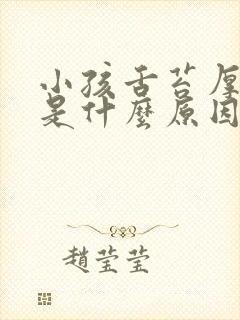 小孩舌苔厚
是什麼原因
趙莹莹